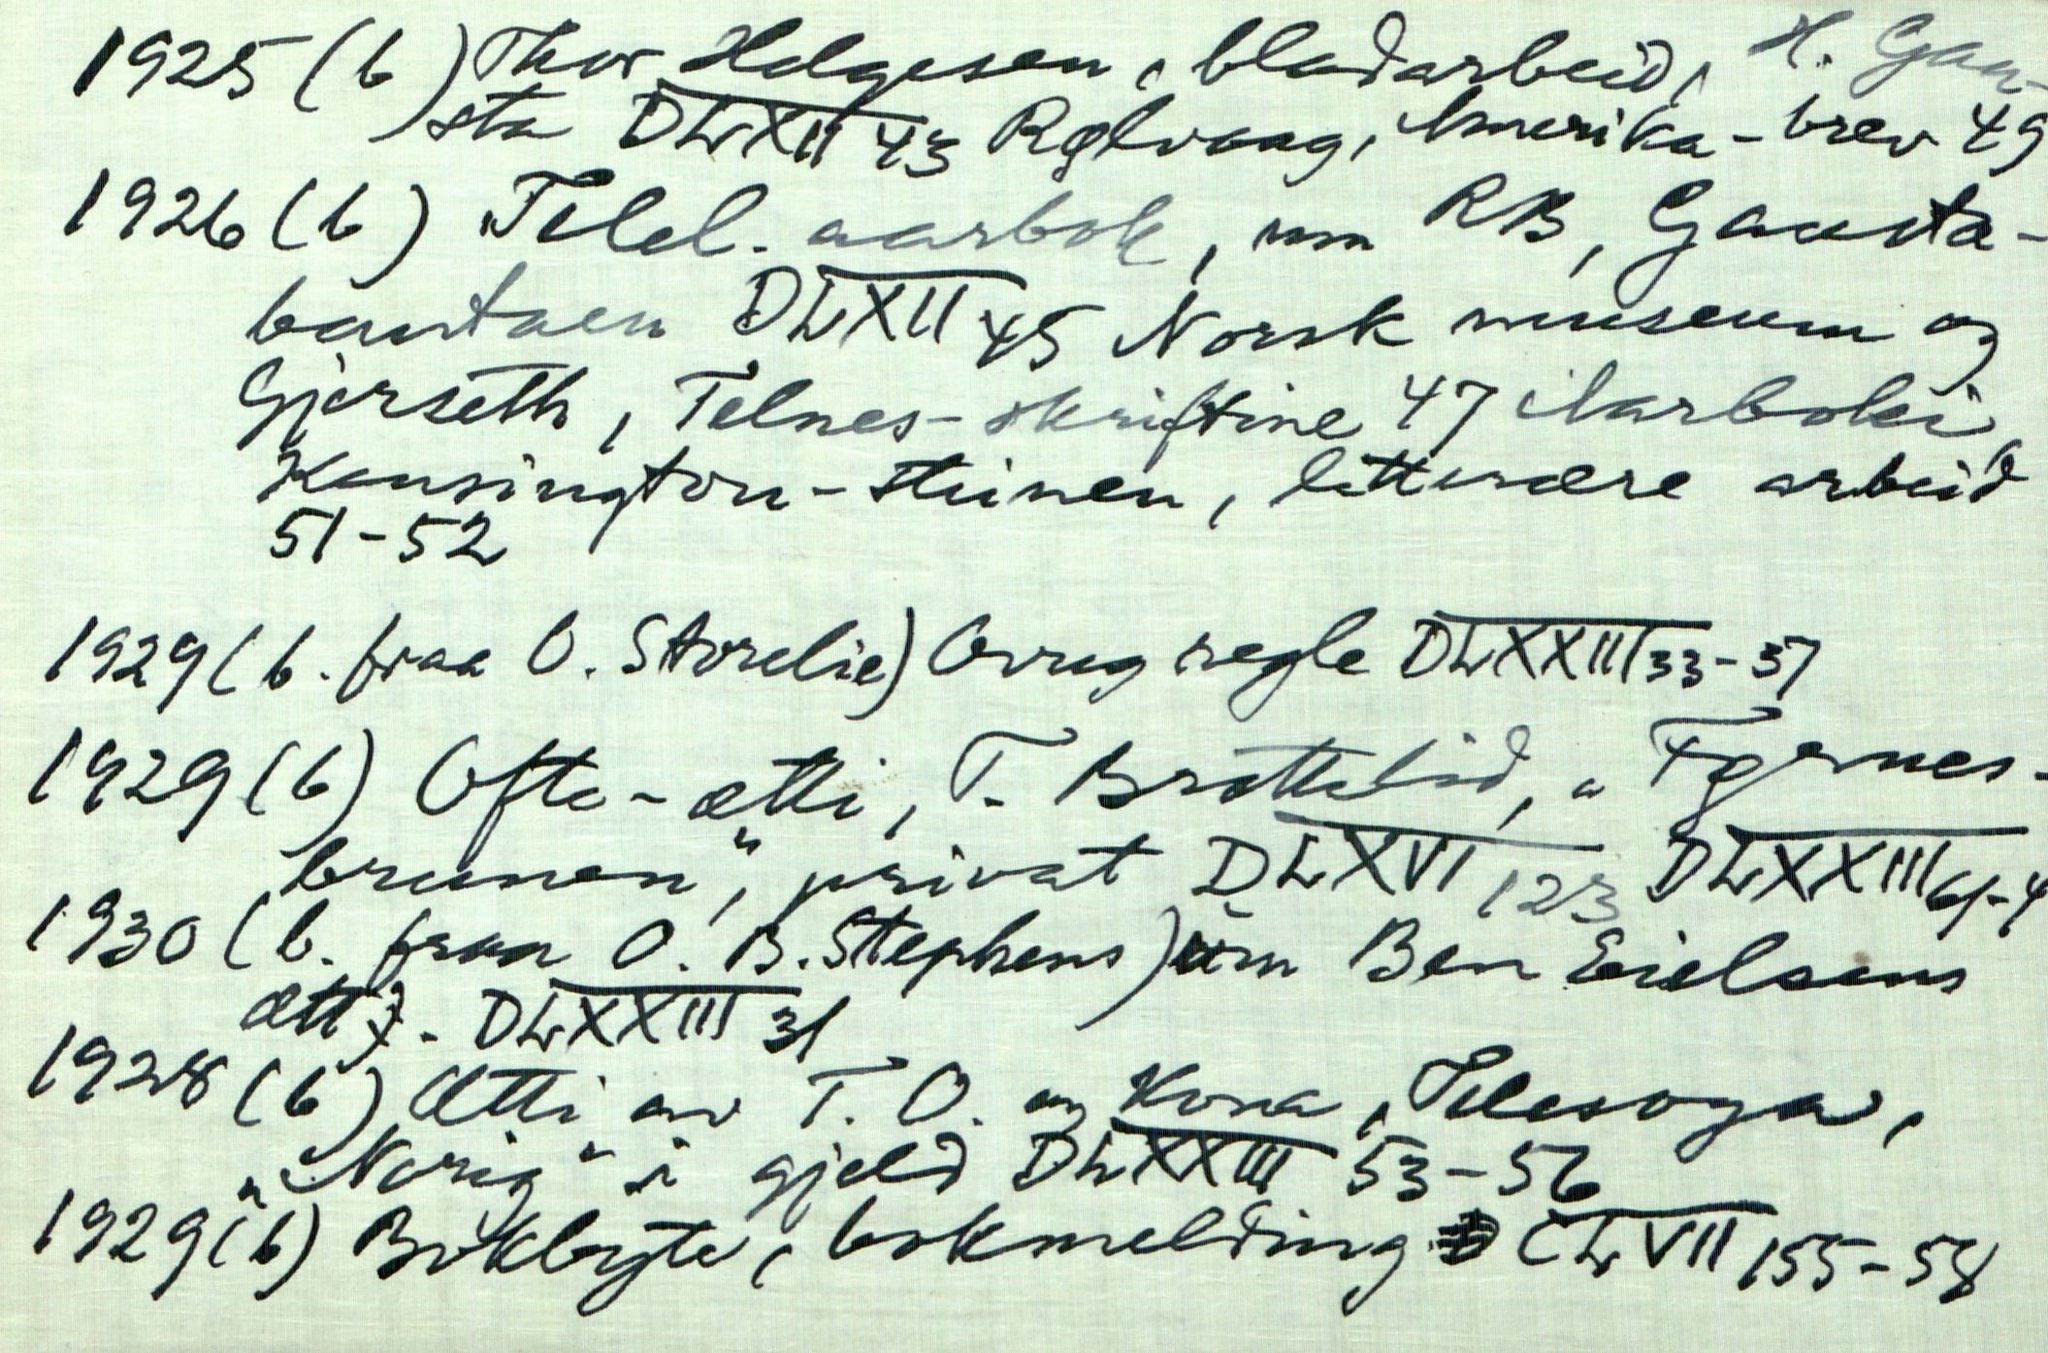 1925 (b) Thor Helgesen, bladarbeid, H. Gau-
sta DLXII 43 Rølvaag, Amerika-brev 49
1926 (b) Telel. aarbok, um RB, Gausta-
bautaen DLXII 45 Norsk museum og
Gjerseth, Telnes-skriftine 47 Aarboki,
Kensington-steinen, litterære arbeid
51-52
1929 (b. fraa O. Storelie) Ovrug regle DLXXIII 33-37
1929 (b) Ofte-ætti, T. Brottelid, "Fyrnes-
brunen", privat DLXVI 123 DLXXIII 61-4
1930 (b. fraa O. B. Stephens) um Ben Eielsens
ætt. DLXXIII 31
1928 (b) Ætti av T. O. og Kona, Telesoga,
"Norig" i gjeld DLXXIII 53-56
1929 (b) Bokbyte, bokmelding CLVII 155-58